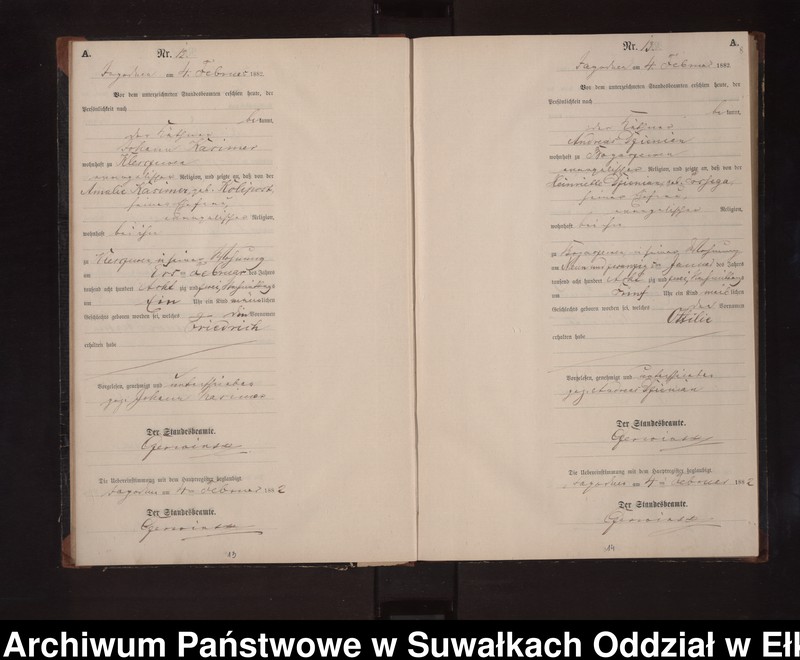 A.
Nr. 12.
am 4. Februar 1882.
Vor dem unterzeichneten Standesbeamten erschien heute, der
Persönlichkeit nach
bekannt,
der Käthner
Johann
wohnhaft zu
evangelischer Religion, und zeigte an, daß von der
Amalie geb.
seiner Ehefrau
evangelischer Religion,
wohnhaft bei ihm
zu in seiner Wohnung
am des Jahres
tausend acht hundert Acht zig und zwei Vormittags
um Ein Uhr ein Kind männlichen
Geschlechts geboren worden sei, welches Vornamen
Friedrich
erhalten habe
Vorgelesen, genehmigt und unterschrieben
gez. Johann
Der Standesbeamte.
Die Uebereinstimmung mit dem Hauptregister beglaubigt
am 4. Februar 1882
Der Standesbeamte.
13
A.
Nr. 13.
am 4. Februar 1882.
Vor dem unterzeichneten Standesbeamten erschien heute, der
Persönlichkeit nach
bekannt,
der Käthner
Andreas
wohnhaft zu
evangelischer Religion, und zeigte an, daß von der
geb.
seiner Ehefrau
evangelischer Religion,
wohnhaft bei ihm
zu in seiner Wohnung
am Neun und zwanzig Januar des Jahres
tausend acht hundert Acht zig und zwei Vormittags
um Fünf Uhr ein Kind weiblichen
Geschlechts geboren worden sei, welches den Vornamen
Ottilie
erhalten habe
Vorgelesen, genehmigt und unterschrieben
gez. Andreas
Der Standesbeamte.
Die Uebereinstimmung mit dem Hauptregister beglaubigt
am 4. Februar 1882
Der Standesbeamte.
14
Archiwum Państwowe w Suwałkach Oddział w Ełk